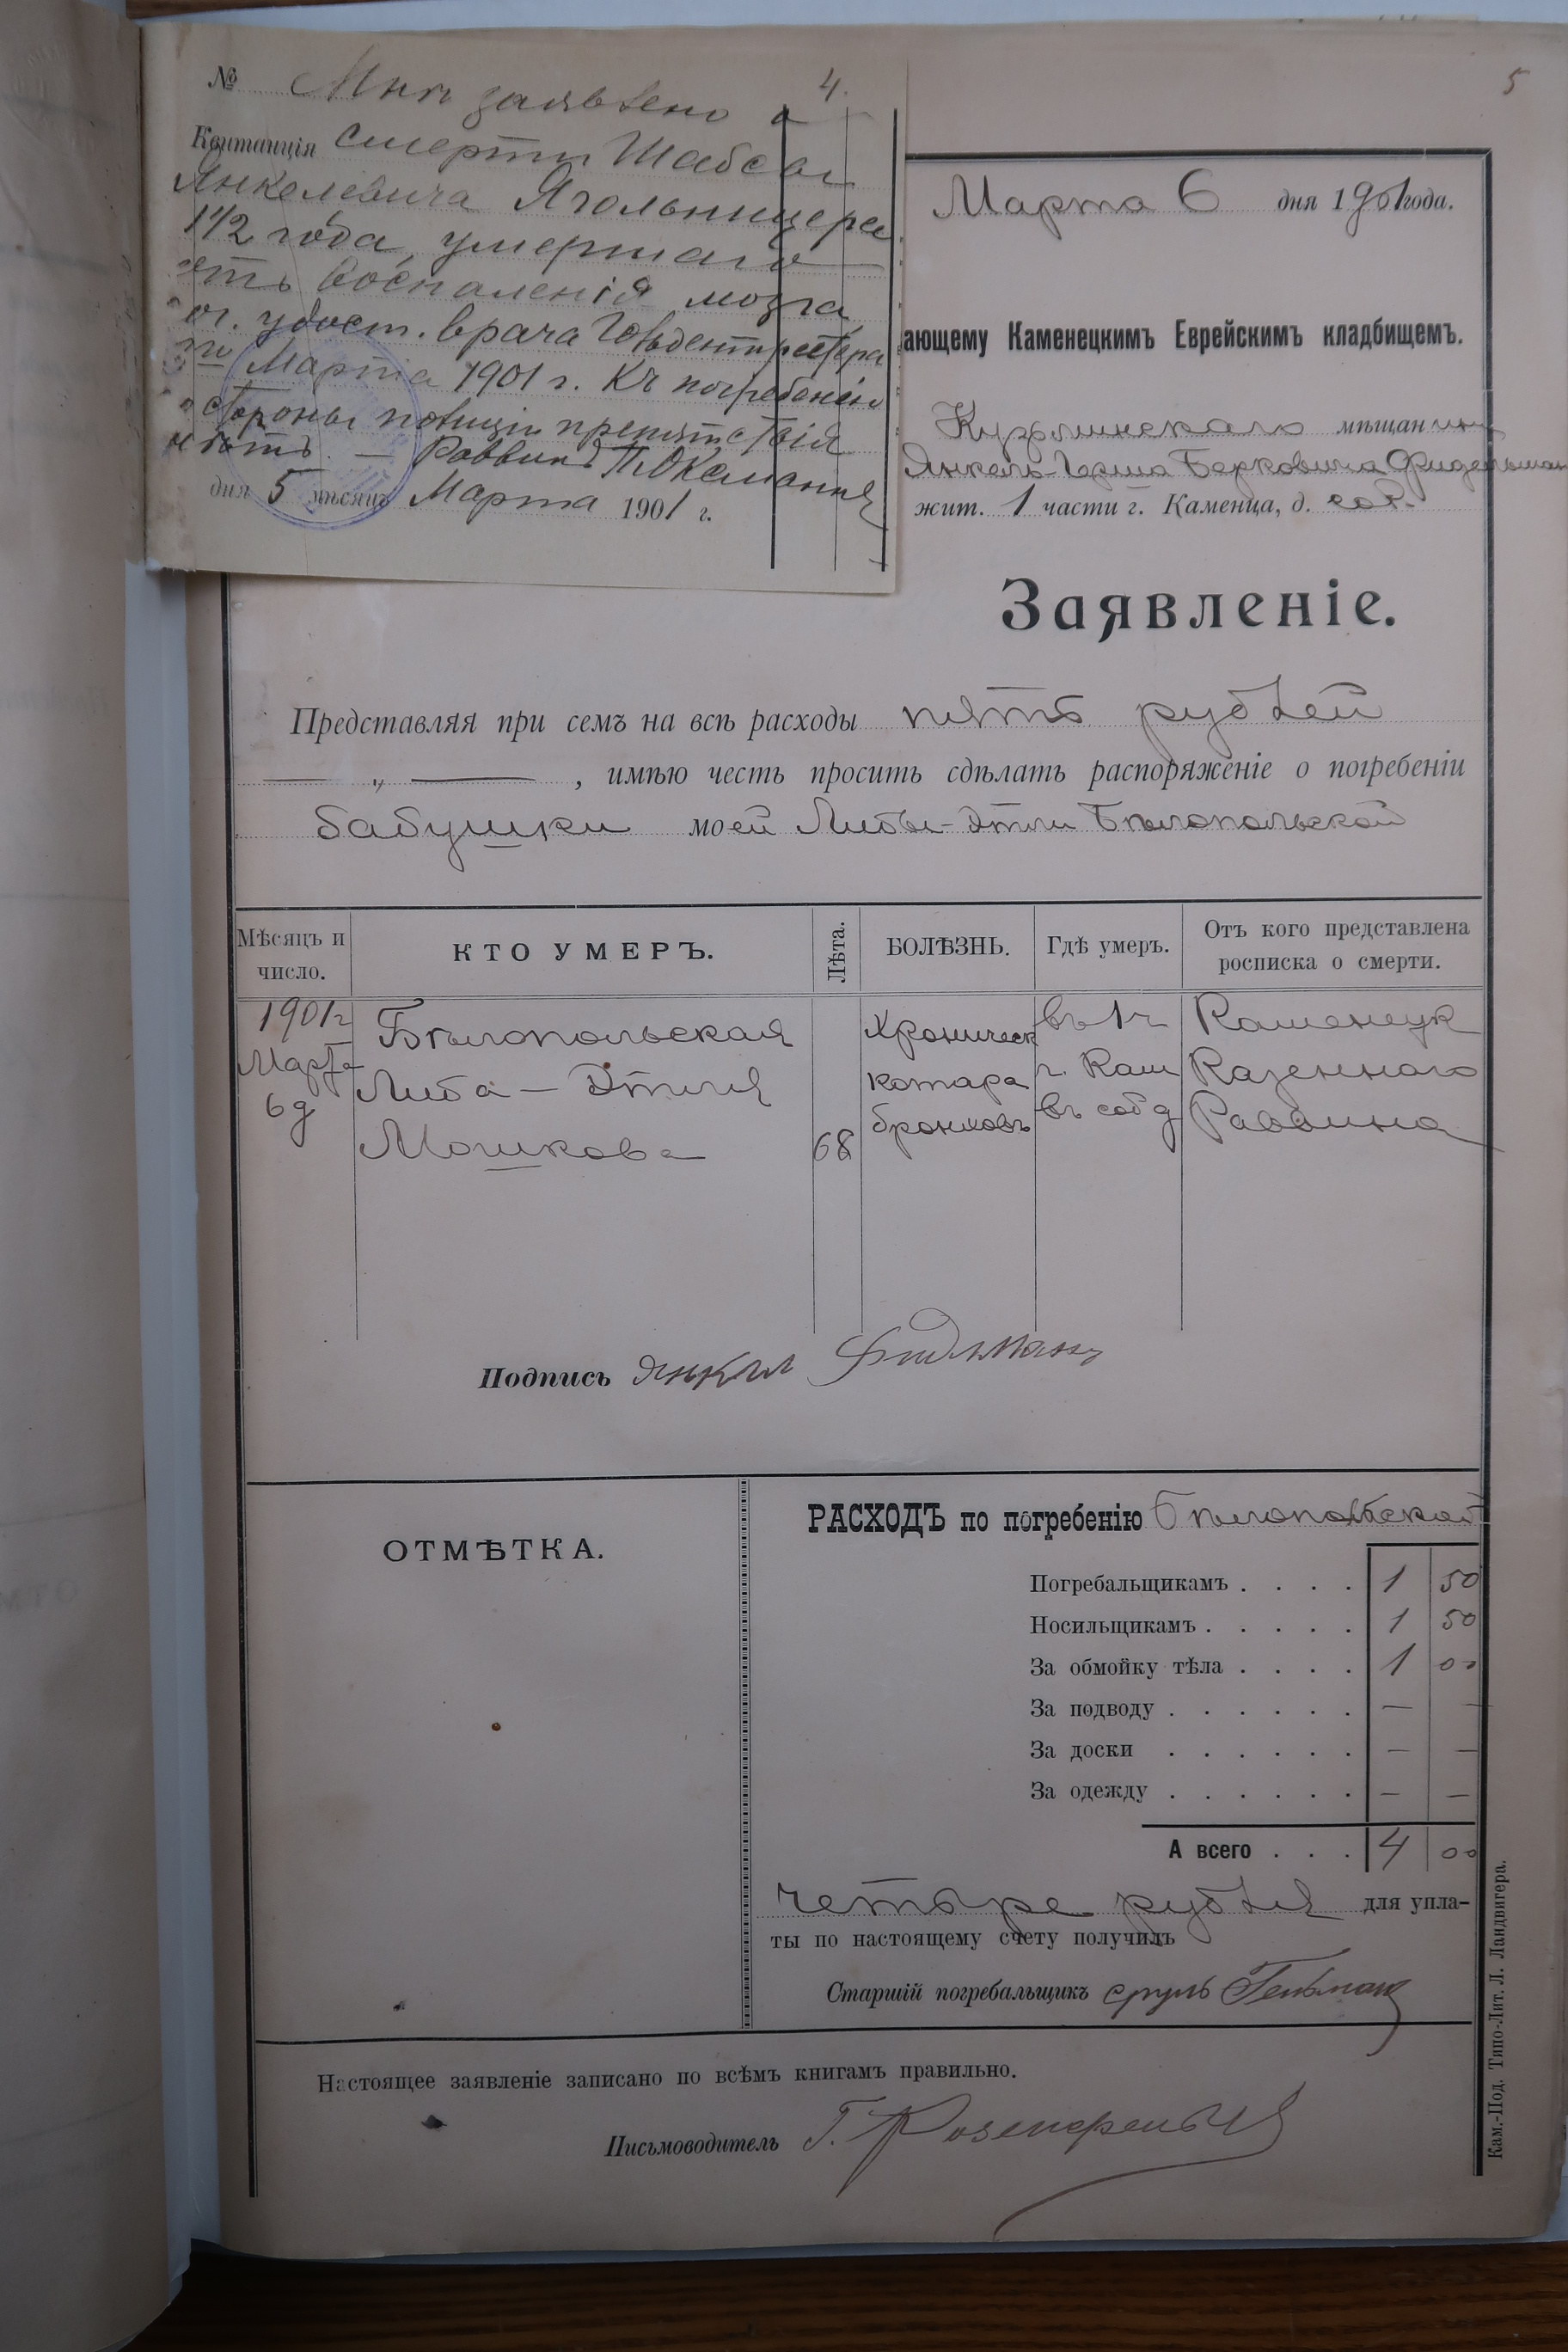 № Мнѣ заявлено о
4.
Квитанція смерти Шабсы
Янкелевича Ягольницера
1 1/2 года, умершаго
отъ воспаленія мозга
удост. врача
Марта 1901 г. Къ погребенію
стороны полиціи препятствія
нѣтъ. — Раввинъ
дня 5 мѣсяц Марта 1901 г.
5
Марта 6 дня 1901 года.
ающему Каменецкимъ Еврейскимъ кладбищемъ.
мѣщанин
Янкель-Герша Берковича Фидельман
жит. 1 части г. Каменца, д. соб.
Заявленіе.
Представляя при семъ на всѣ расходы пять рублей
— „ — , имѣю честь просить сдѣлать распоряженіе о погребеніи
бабушки моей Либы-Этли Бѣлопольской
Мѣсяцъ и число.
КТО УМЕРЪ.
Лѣта.
БОЛѢЗНЬ.
Гдѣ умеръ.
Отъ кого представлена росписка о смерти.
1901 г Марта 6 д
Бѣлопольская
Либа — Этля
Мошкова
68
Хроническ
катара
бронховъ
въ 1 ч
г. Кам
въ соб д
Каменецк
Казеннаго
Раввина
Подпись Янкель Фидльманъ
ОТМѢТКА.
РАСХОДЪ по погребенію Бѣлопольской
Погребальщикамъ . . . . 1 50
Носильщикамъ . . . . . 1 50
За обмойку тѣла . . . . 1 00
За подводу . . . . . . — —
За доски . . . . . . — —
За одежду . . . . . . — —
А всего . . . 4 00
четыре рубля для упла-
ты по настоящему счету получилъ
Старшій погребальщикъ Сруль Гельман
Настоящее заявленіе записано по всѣмъ книгамъ правильно.
Письмоводитель Г.
Кам.-Под. Типо-Лит. Л. Ландвигера.